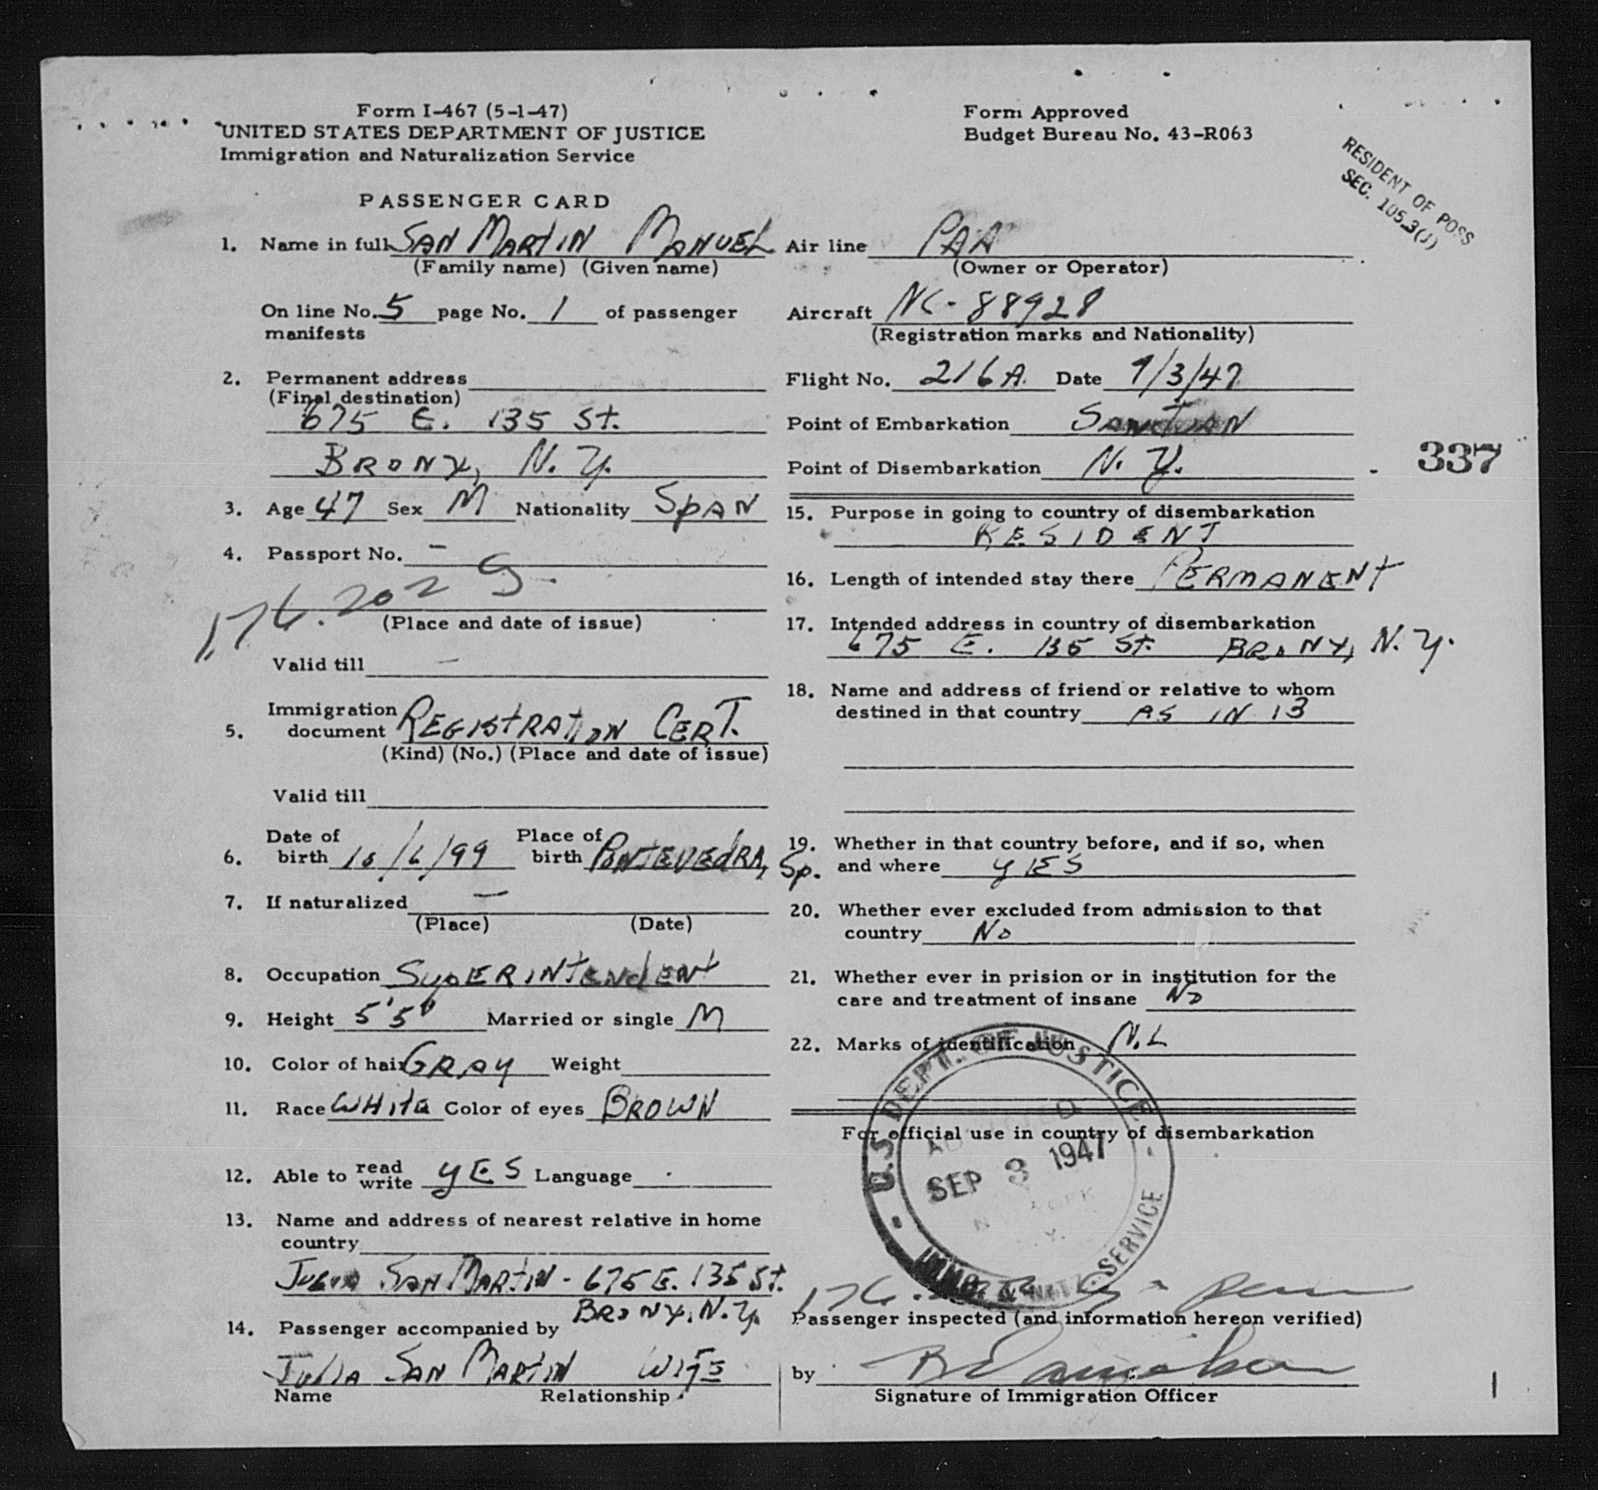 Form I-467 (5-1-47)
UNITED STATES DEPARTMENT OF JUSTICE
Immigration and Naturalization Service
PASSENGER CARD
Form Approved
Budget Bureau No. 43-R063
RESIDENT OF POSS
SEC. 105.3(J)
1. Name in full SAN MARTIN MANUEL
(Family name) (Given name)
On line No. 5 page No. 1 of passenger
manifests
2. Permanent address
(Final destination)
675 E. 135 St.
BRONX, N.Y.
3. Age 47 Sex M Nationality SPAN
4. Passport No. -
176.202 G
(Place and date of issue)
Valid till -
5. Immigration
document REGISTRATION CERT.
(Kind) (No.) (Place and date of issue)
Valid till
6. Date of birth 10/6/99 Place of birth PONTEVEDRA, Sp.
7. If naturalized -
(Place) (Date)
8. Occupation SUPERINTENDENT
9. Height 5'5" Married or single M
10. Color of hair GRAY Weight
11. Race WHITE Color of eyes BROWN
12. Able to read write YES Language
13. Name and address of nearest relative in home
country
JULIA SAN MARTIN - 675 E. 135 St.
BRONX, N.Y.
14. Passenger accompanied by
JULIA SAN MARTIN WIFE
Name Relationship
Air line PAA
(Owner or Operator)
Aircraft NC-88928
(Registration marks and Nationality)
Flight No. 216A Date 9/3/47
Point of Embarkation SAN JUAN
Point of Disembarkation N.Y.
337
15. Purpose in going to country of disembarkation
RESIDENT
16. Length of intended stay there PERMANENT
17. Intended address in country of disembarkation
675 E. 135 St. BRONX, N.Y.
18. Name and address of friend or relative to whom
destined in that country AS IN 13
19. Whether in that country before, and if so, when
and where YES
20. Whether ever excluded from admission to that
country NO
21. Whether ever in prision or in institution for the
care and treatment of insane NO
22. Marks of identification N.L
For official use in country of disembarkation
U.S. DEPT. OF JUSTICE
ADMITTED
SEP 3 1947
NEW YORK
N.Y.
IMMG. & NATZ. SERVICE
176.
Passenger inspected (and information hereon verified)
by
Signature of Immigration Officer